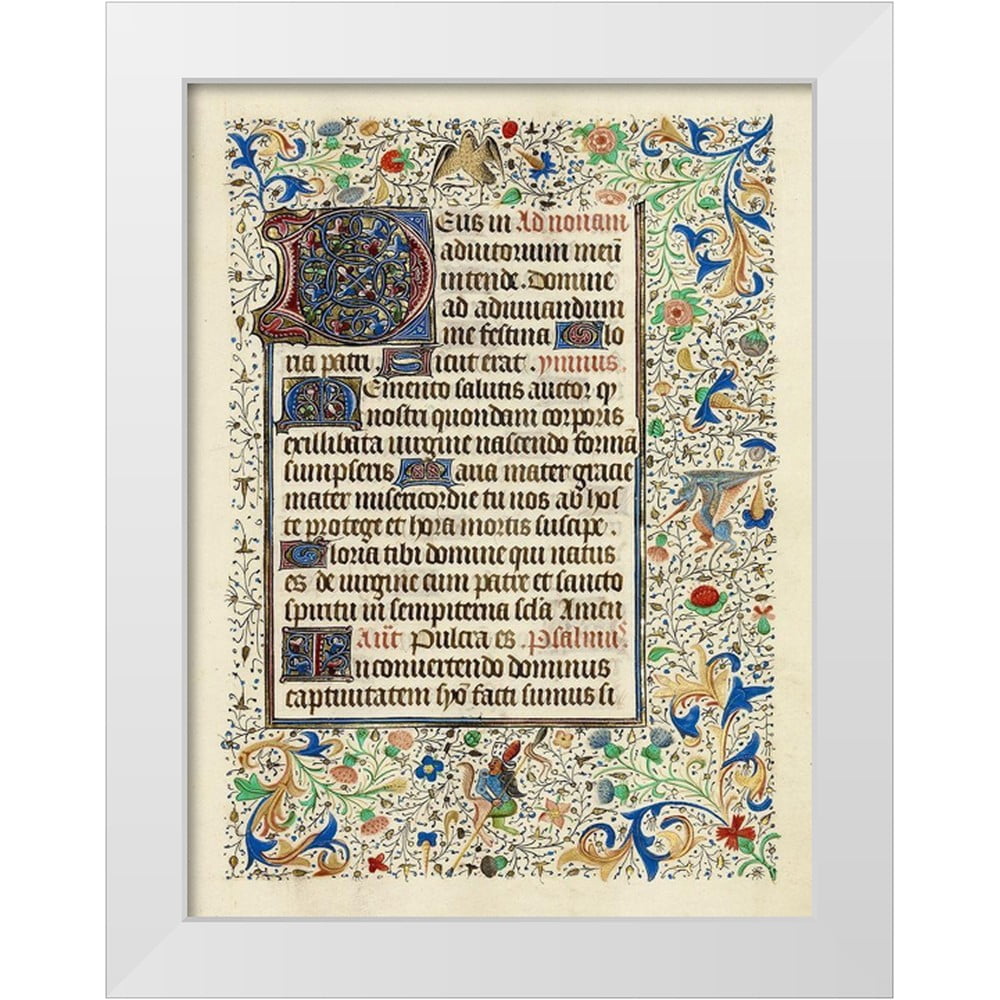 Deus in Ad nonam
adiutorium meũ
intende. Domine
ad adiuuandum
me festina Glo
ria patri Sicut erat. ymnus.
Memento salutis auctor qꝫ
nostri quondam corporis
ex illibata uirgine nascendo formã
sumpseris Maria mater gracie
mater misericordie tu nos ab hos
te protege et hora mortis suscipe.
Gloria tibi domine qui natus
es de uirgine cum patre et sancto
spiritu in sempiterna scľa Amen
Añt Pulcra es Psalmus
In conuertendo dominus
captiuitatem syõ facti sumus si